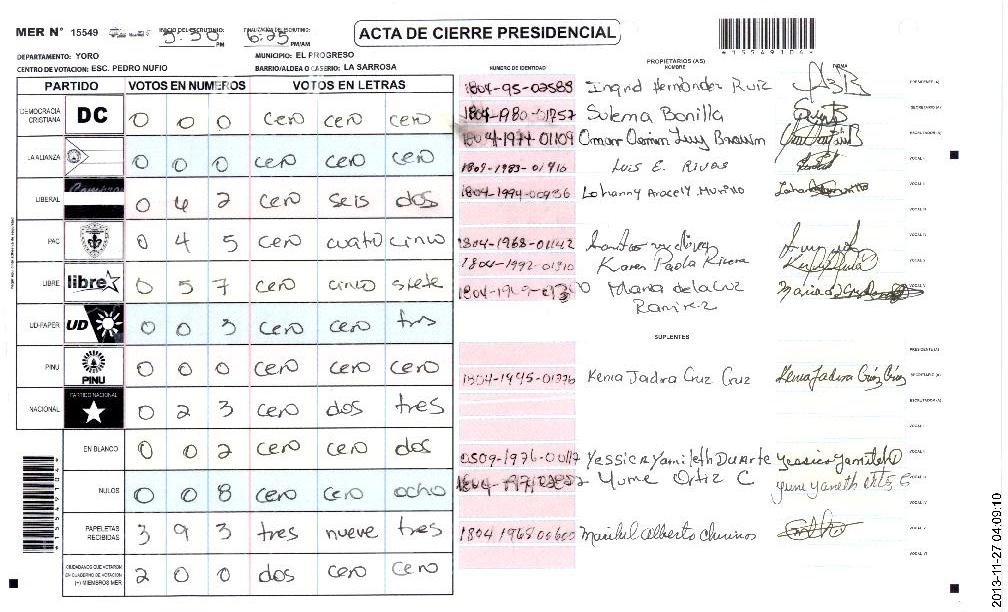 MER N° 15549 INICIO DEL ESCRUTINIO: 5:30 PM FINALIZACIÓN DEL ESCRUTINIO: 6:25 PM/AM
ACTA DE CIERRE PRESIDENCIAL
*15549104*
DEPARTAMENTO: YORO MUNICIPIO: EL PROGRESO
CENTRO DE VOTACION: ESC. PEDRO NUFIO BARRIO/ALDEA O CASERIO: LA SARROSA
PARTIDO VOTOS EN NUMEROS VOTOS EN LETRAS
DEMOCRACIA CRISTIANA DC 0 0 0 cero cero cero
LA ALIANZA 0 0 0 cero cero cero
LIBERAL 0 6 2 cero seis dos
PAC 0 4 5 cero cuatro cinco
LIBRE libre 0 5 7 cero cinco siete
UD-FAPER UD 0 0 3 cero cero tres
PINU PINU 0 0 0 cero cero cero
NACIONAL PARTIDO NACIONAL 0 2 3 cero dos tres
EN BLANCO 0 0 2 cero cero dos
NULOS 0 0 8 cero cero ocho
PAPELETAS RECIBIDAS 3 9 3 tres nueve tres
CIUDADANOS QUE VOTARON EN CUADERNO DE VOTACION (+) MIEMBROS MER 2 0 0 dos cero cero
PROPIETARIOS (AS)
NUMERO DE IDENTIDAD NOMBRE FIRMA
1804-95-02589 Ingrid Hernández Ruiz PRESIDENTE (A)
1804-1980-01757 Sulema Bonilla SECRETARIO (A)
1804-1974-01109 Omar ESCRUTADOR (A)
1807-1983-01916 Luis E. Rivas VOCAL I
1804-1994-00936 Lohanny Aracely Murillo
1804-1968-01142
1804-1992-01310 Karen Paola Rivera
Maria de la Cruz Ramirez
SUPLENTES
PRESIDENTE (A)
1804-1995-01276 Kenia Jadira Cruz Cruz Kenia Jadira Cruz Cruz SECRETARIO (A)
ESCRUTADOR (A)
VOCAL I
0509-1976-00117 Yessica Yamileth Duarte Yessica Yamileth
Yume Ortiz C
1804 1968 00600 Maribel Alberto Chirinos
2013-11-27 04:09:10